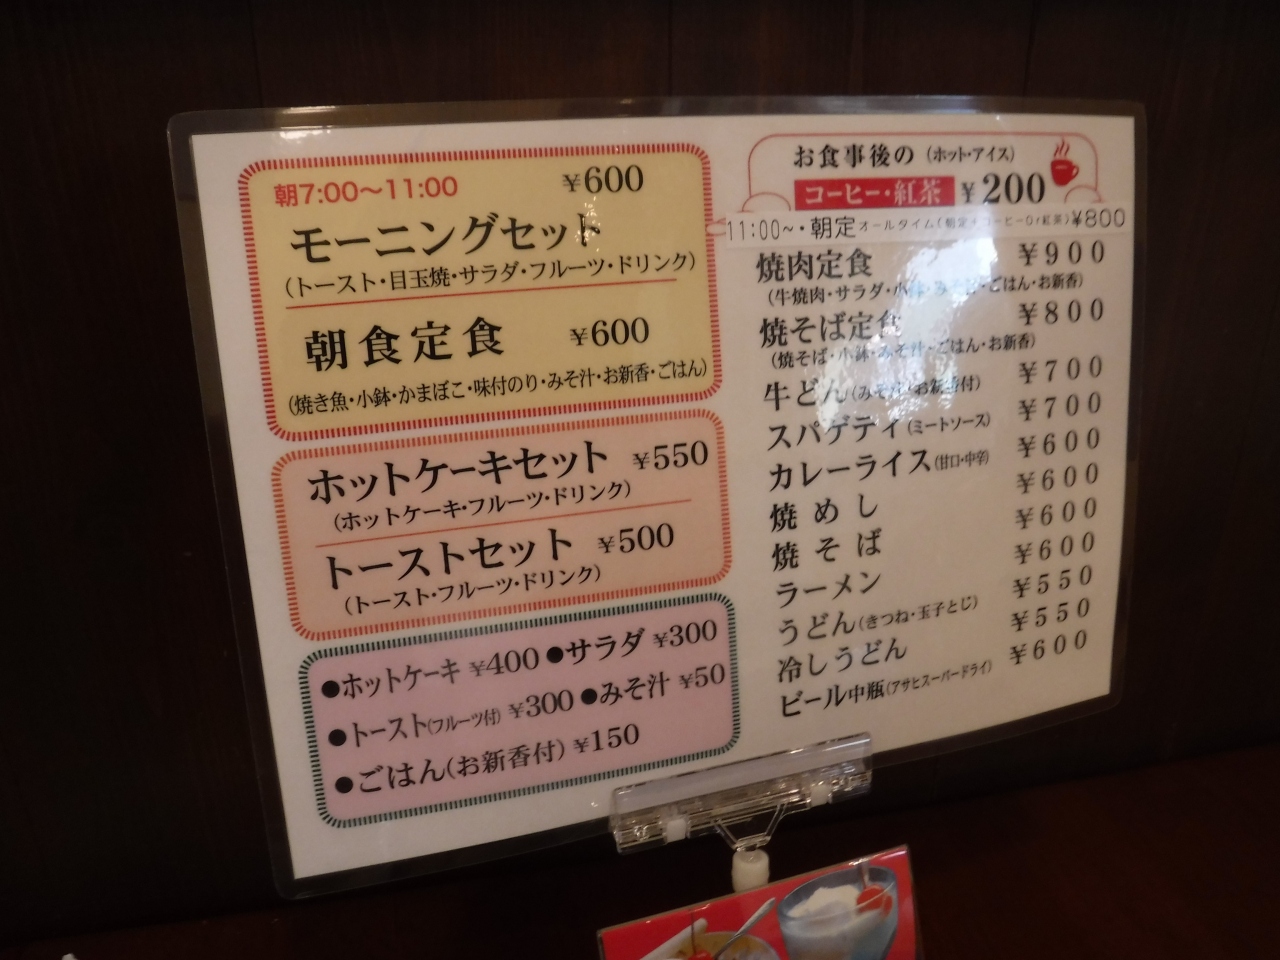 朝7:00～11:00
¥600
モーニングセット
(トースト・目玉焼・サラダ・フルーツ・ドリンク)
朝食定食 ¥600
(焼き魚・小鉢・かまぼこ・味付のり・みそ汁・お新香・ごはん)
ホットケーキセット ¥550
(ホットケーキ・フルーツ・ドリンク)
トーストセット ¥500
(トースト・フルーツ・ドリンク)
●ホットケーキ ¥400 ●サラダ ¥300
●トースト(フルーツ付) ¥300 ●みそ汁 ¥50
●ごはん(お新香付) ¥150
お食事後の (ホット・アイス)
コーヒー・紅茶 ¥200
11:00~・朝定オールタイム(朝定+コーヒーOr紅茶)¥800
焼肉定食 ¥900
(牛焼肉・サラダ・小鉢・みそ汁・ごはん・お新香)
焼そば定食 ¥800
(焼そば・小鉢・みそ汁・ごはん・お新香)
牛どん(みそ汁・お新香付) ¥700
スパゲティ(ミートソース) ¥700
カレーライス(甘口・中辛) ¥600
焼めし ¥600
焼そば ¥600
ラーメン ¥600
うどん(きつね・玉子とじ) ¥550
冷しうどん ¥550
ビール中瓶(アサヒスーパードライ) ¥600